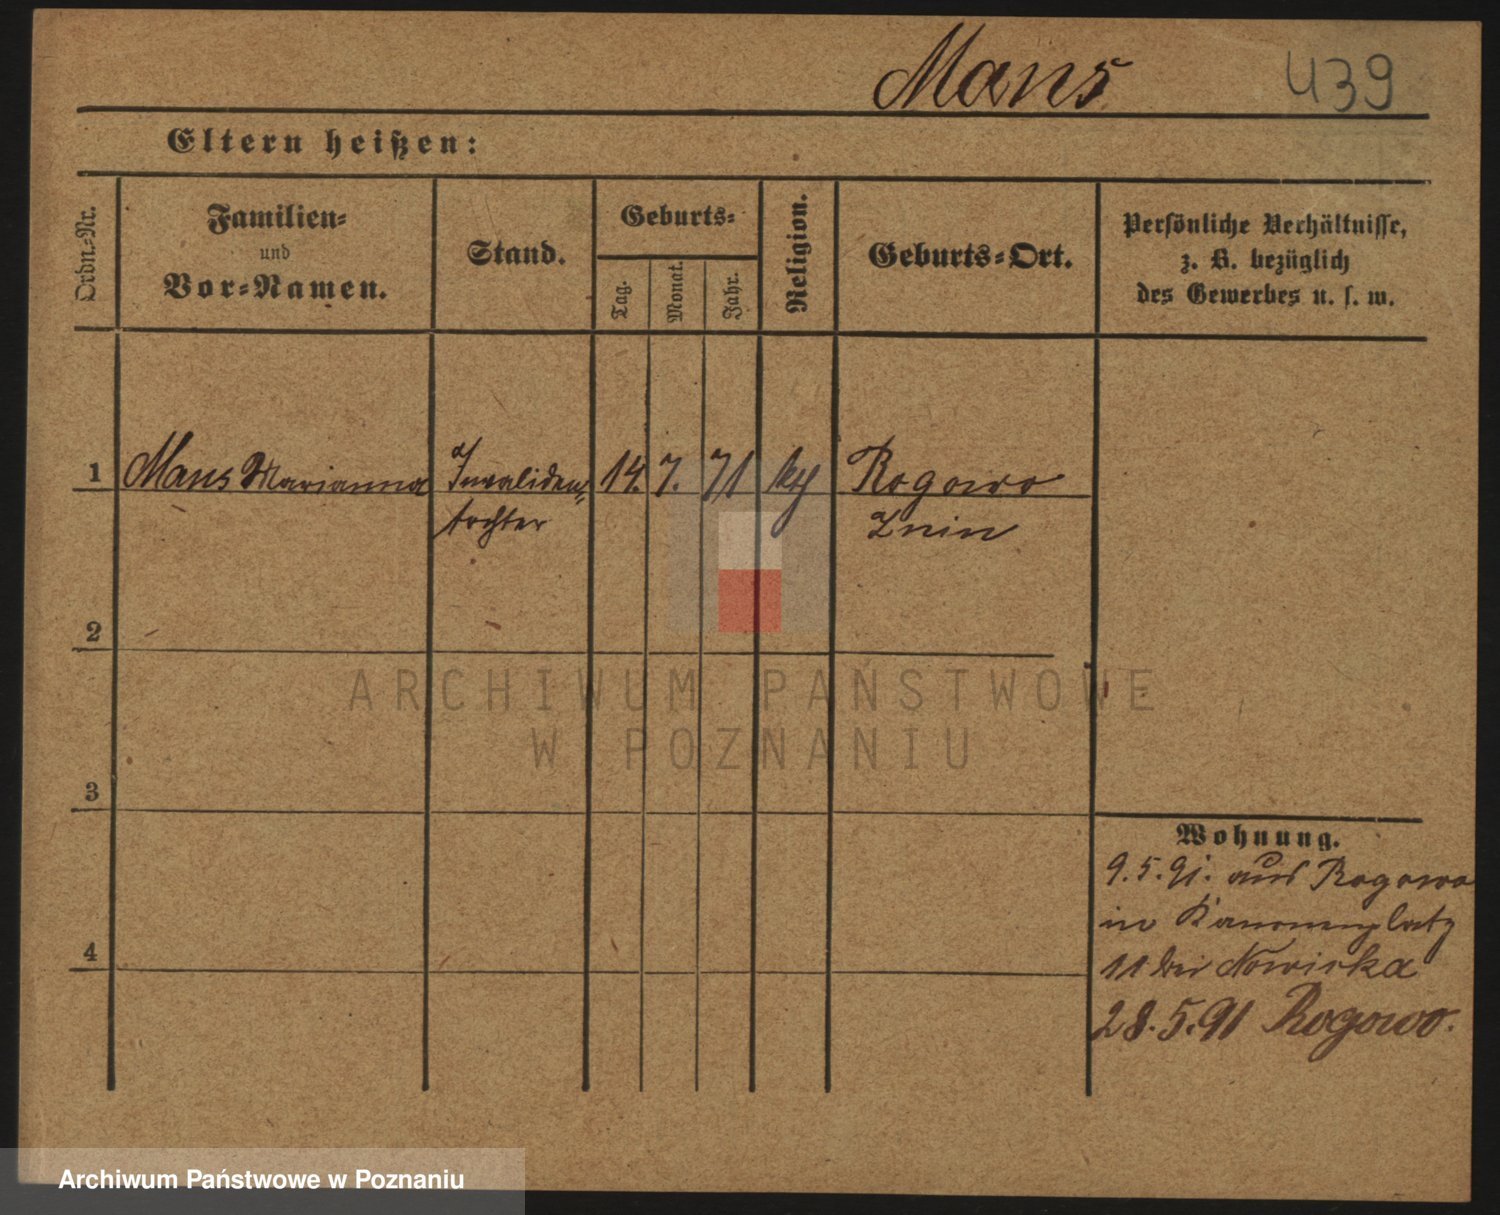 Mans
439
Eltern heißen:
Ordn.-Nr.
Familien-
und
Vor-Namen.
Stand.
Geburts-
Tag.
Monat.
Jahr.
Religion.
Geburts-Ort.
Persönliche Verhältnisse,
z. B. bezüglich
des Gewerbes u. s. w.
1 Mans Marianna Invaliden- 14. 7. 71 Rogowo
tochter Znin
2
ARCHIWUM PAŃSTWOWE
W POZNANIU
3
Wohnung.
9.5.91. aus Rogowo
in Kanonenplatz
11 bei Nowicka
4
28.5.91 Rogowo.
Archiwum Państwowe w Poznaniu